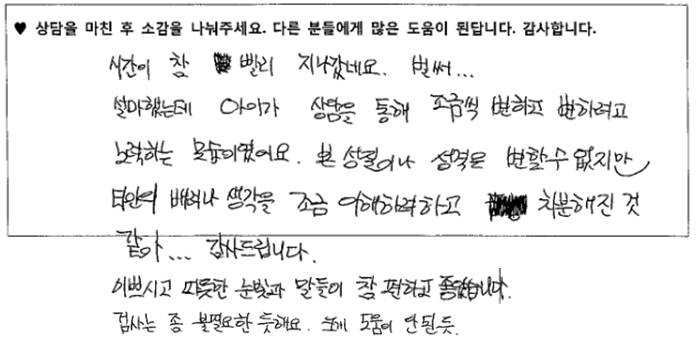 ♥ 상담을 마친 후 소감을 나눠주세요. 다른 분들에게 많은 도움이 된답니다. 감사합니다.
시간이 참 빨리 지나갔네요. 벌써...
설마했는데 아이가 상담을 통해 조금씩 변하고 변하려고
노력하는 모습이였어요. 본 성질이나 성격은 변할수 없지만
타인의 배려나 생각을 조금 이해하려하고 차분해진 것
같아... 감사드립니다.
이쁘시고 따뜻한 눈빛과 말들이 참 편하고 좋았습니다.
검사는 좀 불필요한 듯해요. 도움이 안된듯.